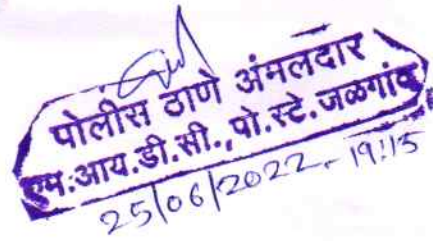 पोलीस ठाणे अंमलदार
एम.आय.डी.सी., पो.स्टे.जळगांव
25/06/2022 - 19:15